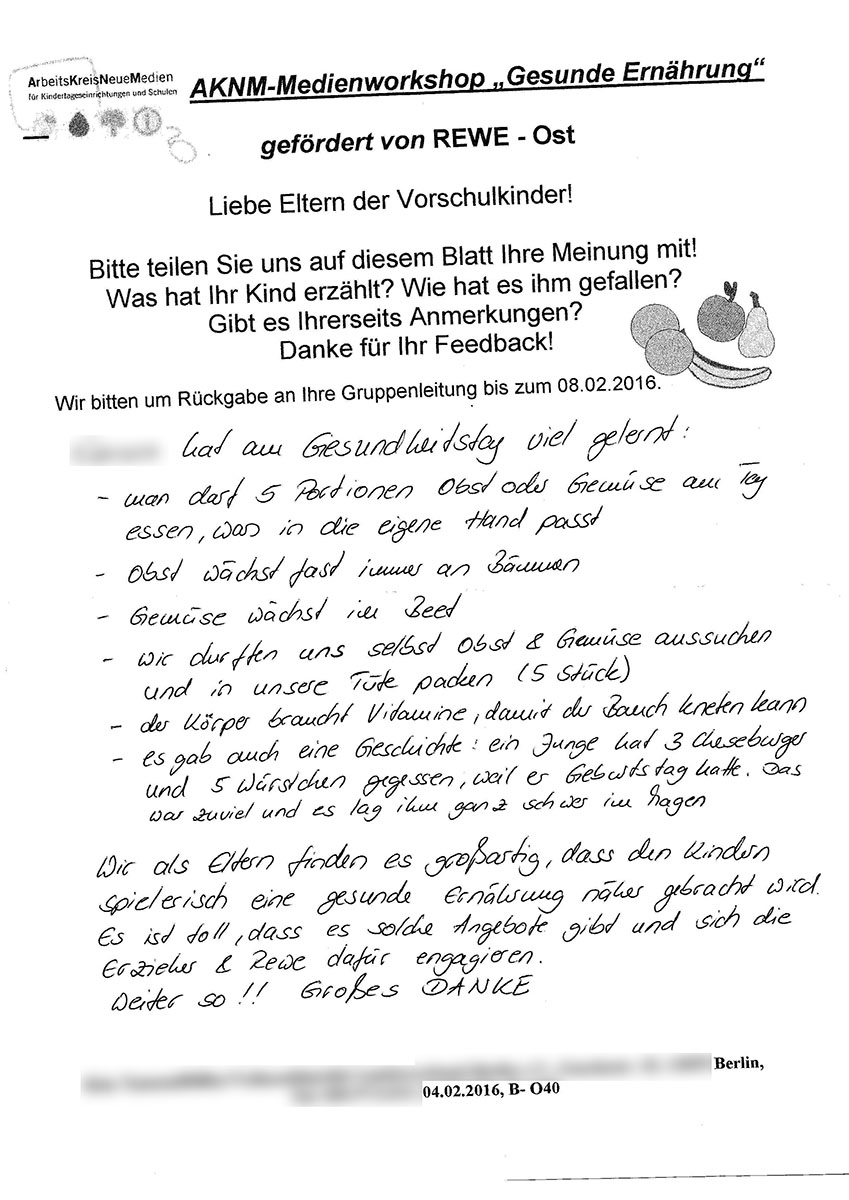 ArbeitsKreisNeueMedien
für Kindertageseinrichtungen und Schulen
AKNM-Medienworkshop „Gesunde Ernährung“
gefördert von REWE - Ost
Liebe Eltern der Vorschulkinder!
Bitte teilen Sie uns auf diesem Blatt Ihre Meinung mit!
Was hat Ihr Kind erzählt? Wie hat es ihm gefallen?
Gibt es Ihrerseits Anmerkungen?
Danke für Ihr Feedback!
Wir bitten um Rückgabe an Ihre Gruppenleitung bis zum 08.02.2016.
hat am Gesundheitstag viel gelernt:
- man darf 5 Portionen Obst oder Gemüse am Tag
essen, was in die eigene Hand passt
- Obst wächst fast immer an Bäumen
- Gemüse wächst im Beet
- wir durften uns selbst Obst & Gemüse aussuchen
und in unsere Tüte packen (5 Stück)
- der Körper braucht Vitamine, damit der Bauch kneten kann
- es gab auch eine Geschichte: ein Junge hat 3 Cheseburger
und 5 Würstchen gegessen, weil er Geburtstag hatte. Das
war zuviel und es lag ihm ganz schwer im Magen
Wir als Eltern finden es großartig, dass den Kindern
spielerisch eine gesunde Ernährung näher gebracht wird.
Es ist toll, dass es solche Angebote gibt und sich die
Erzieher & Rewe dafür engagieren.
Weiter so!! Großes DANKE
Berlin,
04.02.2016, B- O40